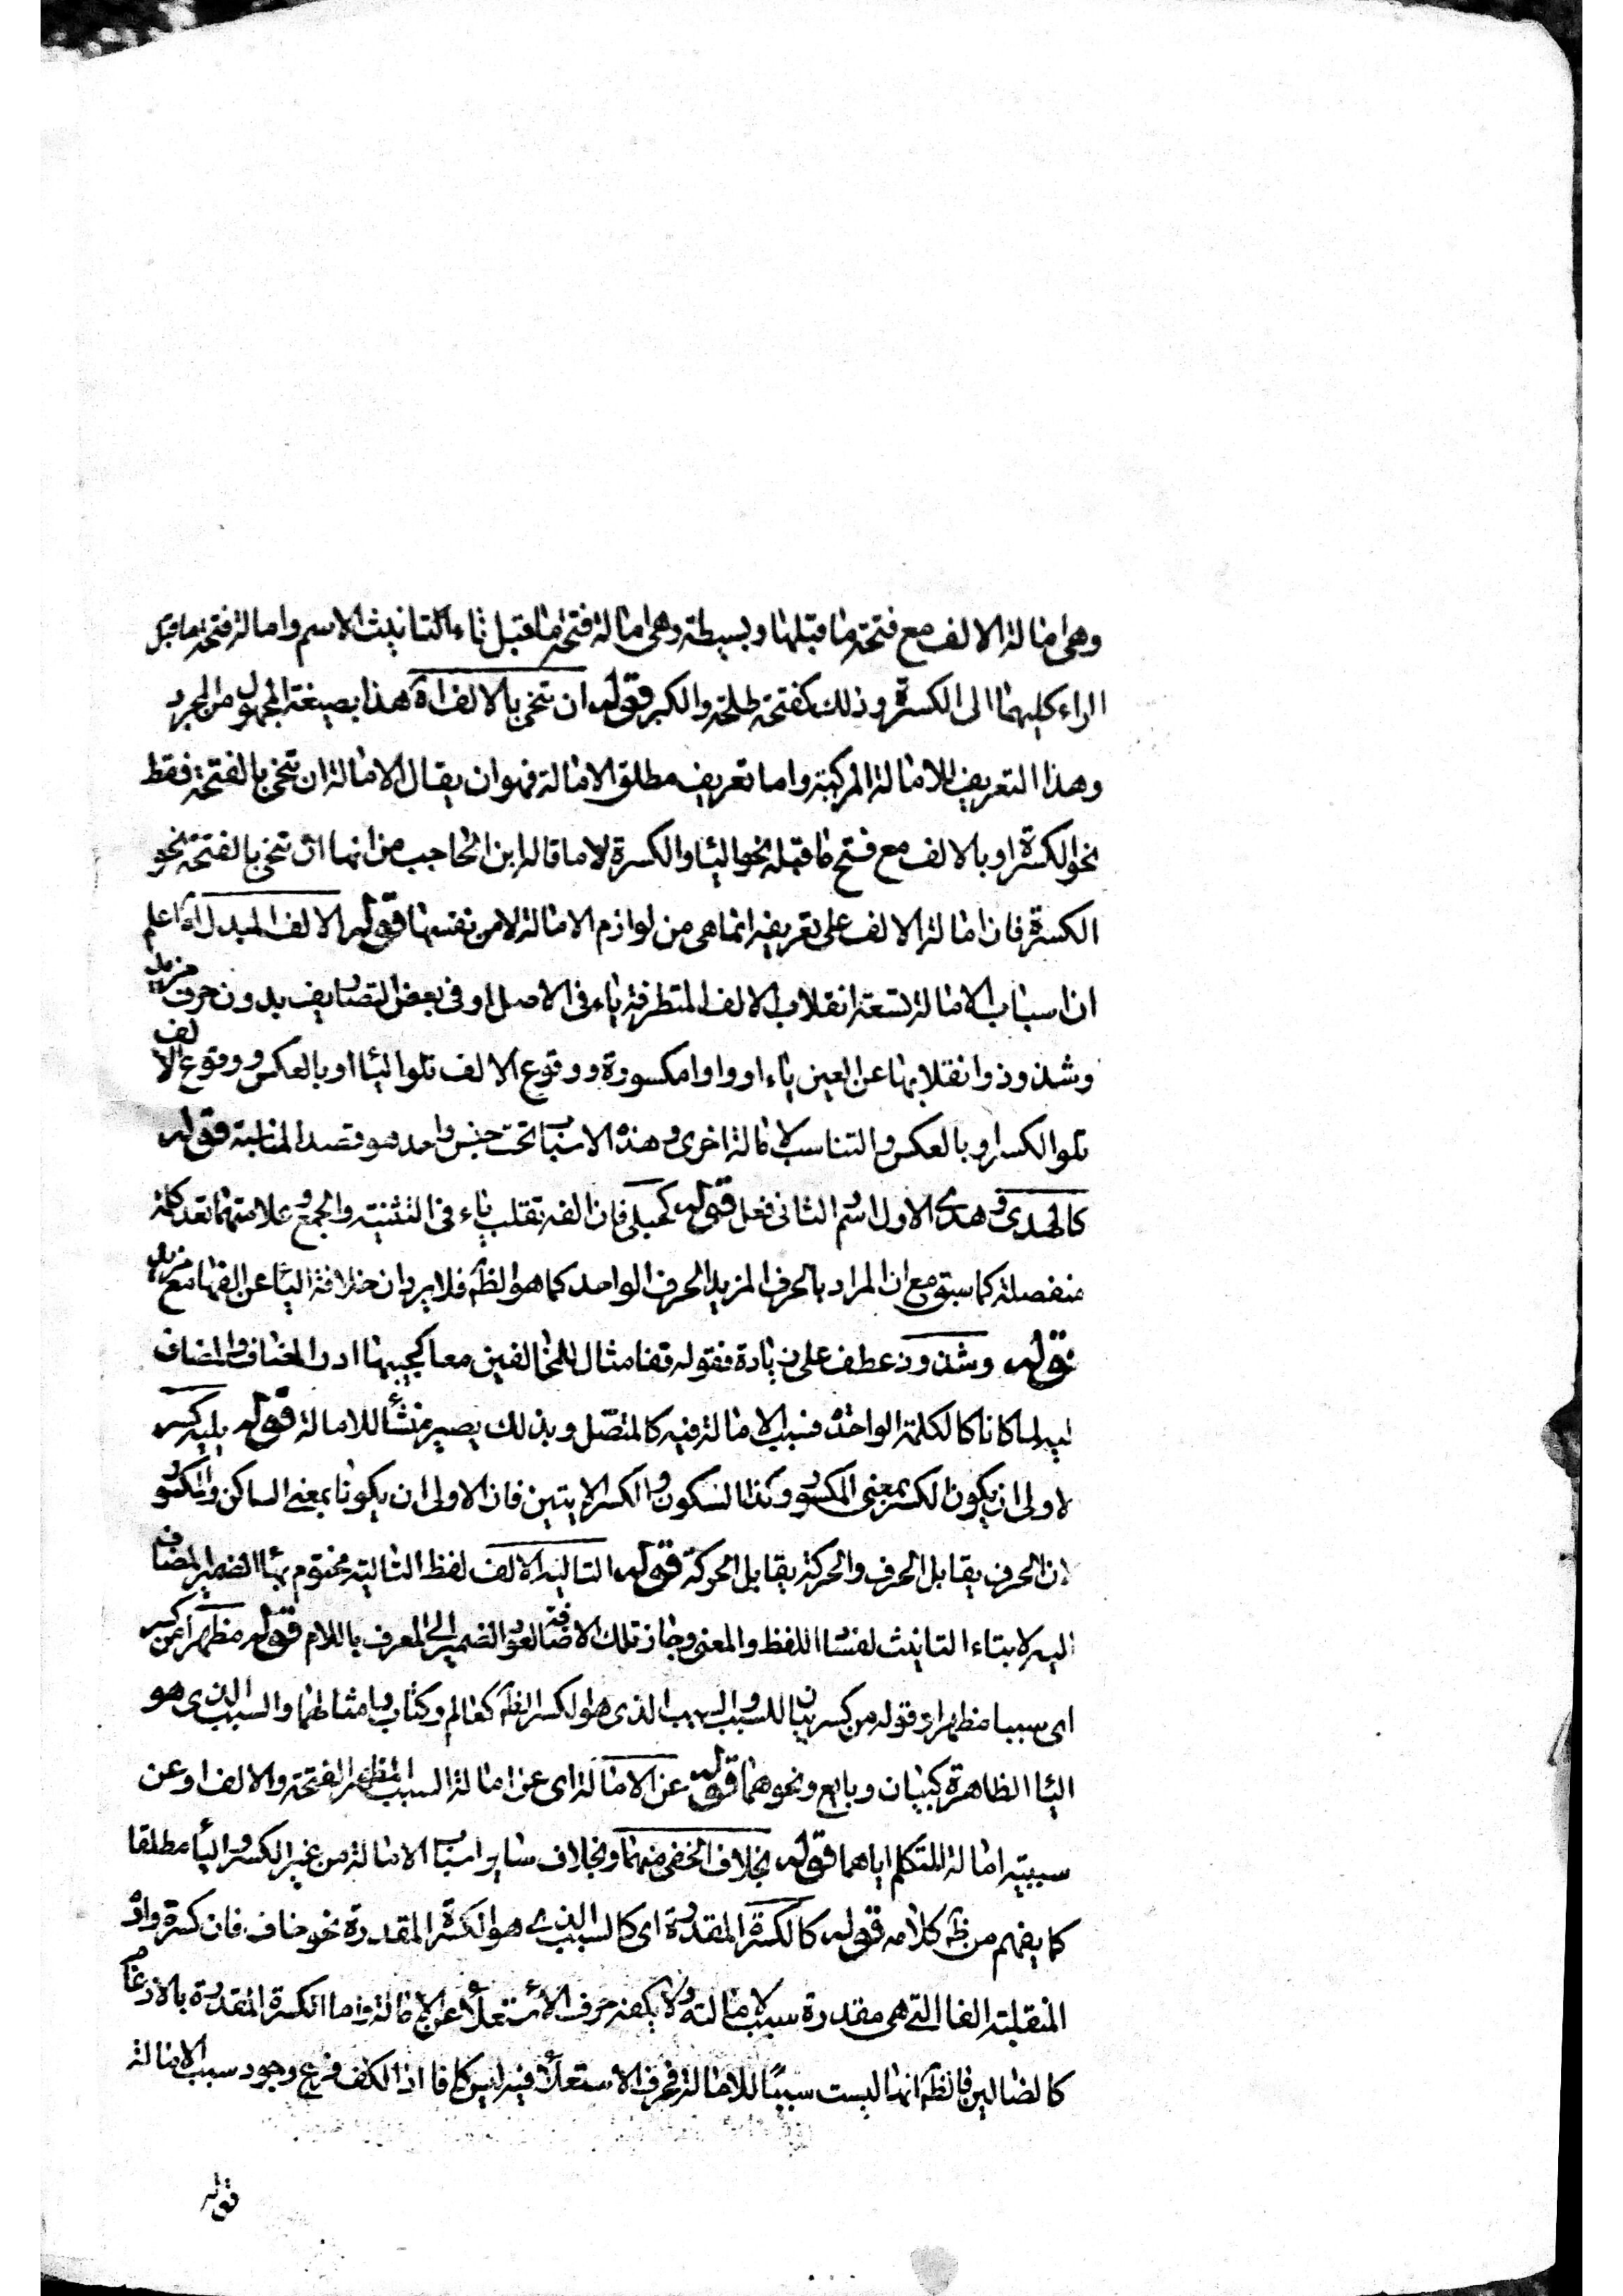 وهى امالة الالف مع فتحة ما قبلها وبسيطة وهى امالة فتحة ما قبل تاء التانيث الاسم وامالة فتحة ما قبل
الراء كليهما الى الكسرة وذلك كفتحة طلحة والكبر قوله ان تنحى بالالف اه هذا بصيغة المجهول من المجرد
وهذا التعريف للامالة المركبة واما تعريف مطلق الامالة فهو ان يقال الامالة ان تنحى بالفتحة فقط
نحو الكسرة او بالالف مع فتح ما قبله نحو اليا والكسرة لا ما قاله ابن الحاجب من انها ان تنحى بالفتحة نحو
الكسرة فان امالة الالف على تعريفه انما هى من لوازم الامالة لا من نفسها قوله الالف المبدل اه اعلم
ان اسباب الامالة تسعة انقلاب الالف المتطرفة ياء فى الاصل او فى بعض التصاريف بدون حرف مزيد
وشذوذ وانقلابها عن العين ياء او واوا مكسورة ووقوع الالف تلو اليا او بالعكس ووقوع الالف
تلو الكسر او بالعكس والتناسب لامالة اخرى وهذه الاسباب تحت جنس واحد هو قصد المناسبة قوله
كالهدى وهدى الاول اسم الثانى فعل قوله كحبلى فان الفه تقلب ياء فى التثنية والجمع وعلامتهما تعد كلمة
منفصلة كما سبق مع ان المراد بالحرف المزيد الحرف الواحد كما هو الظ فلا يرد ان خلافة اليا عن الفها مع مزيد
قوله وشذوذ عطف على زيادة فقوله قفا مثال للمخالفين معا كجيبها ادر المضاف والمضاف
اليه لما كانا كالكلمة الواحدة فسبب الامالة فيه كالمتصل وبذلك يصير منشأ للامالة قوله يليه كسر
الاولى ان يكون الكسر بمعنى المكسور وكذا السكون والكسر الايتين فان الاولى ان يكونا بمعنى الساكن والمكسور
لان الحرف يقابل الحرف والحركة يقابل الحركة قوله التاليه الالف لفظ التاليه مختوم بها الضمير المضاف
اليه لا بتاء التانيث لفساد اللفظ والمعنى وجاز تلك الاضافة لعود الضمير الى المعرف باللام قوله مظهرا من كسر
اى سببا مظهرا وقوله من كسر بيان للسبب والسبب الذى هو الكسر الظ كعالم وكتاب وامثالهما والسبب الذى هو
اليا الظاهرة كبيان وبايع ونحوهما قوله عن الامالة اى عن امالة السبب المظهر الفتحة والالف او عن
سببية امالة المتكلم اياهما قوله بخلاف الخفى منهما وبخلاف ساير اسباب الامالة من غير الكسر واليا مطلقا
كما يفهم من ظ كلامه قوله كالكسرة المقدرة اى كالسبب الذى هو الكسرة المقدرة نحو خاف فان كسرة واوه
المنقلبة الفا التى هى مقدرة سبب لامالته ولا يكفه حرف الاستعلا عن الامالة واما الكسرة المقدرة بالادغام
كالضالين فالظ انها ليست سببا للامالة فحرف الاستعلا فيه ليس كافا اذ الكف فرع وجود سبب الامالة
قوله